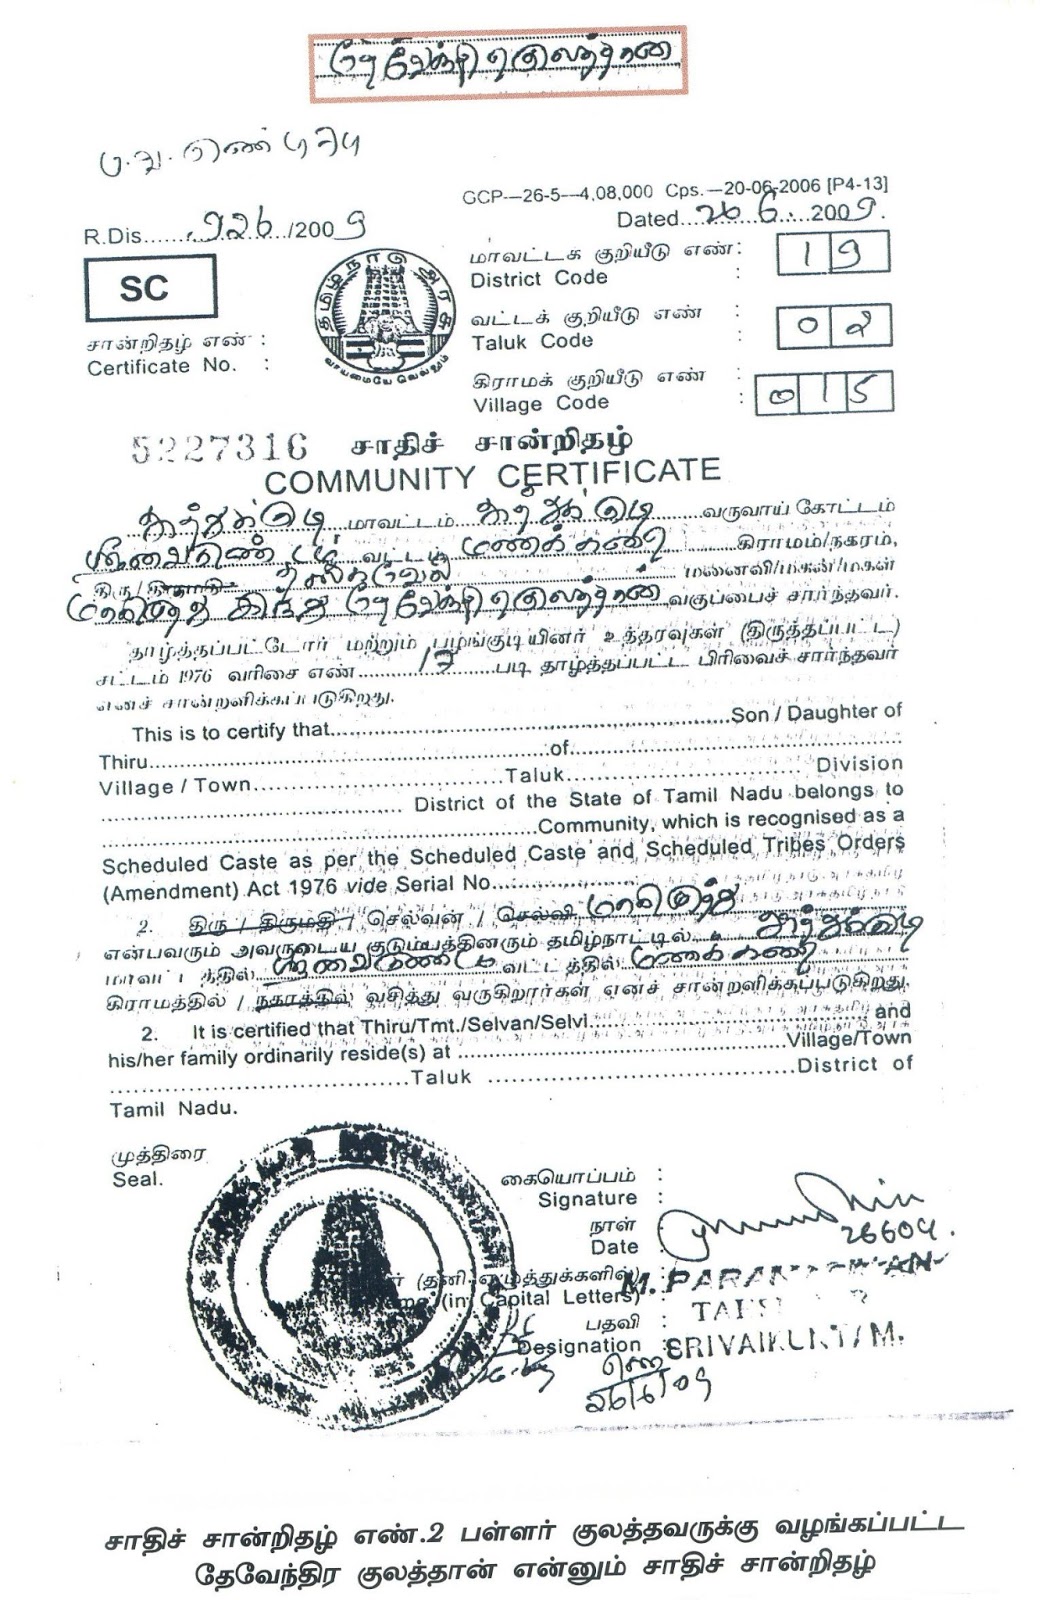 தேவேந்திர குலத்தான்
GCP—26-5—4,08,000 Cps.—20-06-2006 [P4-13]
R.Dis.......926/2009 Dated....26.6...2009.
SC
தமிழ்நாடு அரசு
வாய்மையே வெல்லும்
மாவட்டக் குறியீடு எண் : 19
District Code :
வட்டக் குறியீடு எண் : 02
Taluk Code :
கிராமக் குறியீடு எண் : 015
Village Code :
சான்றிதழ் எண் :
Certificate No. :
5227316 சாதிச் சான்றிதழ்
COMMUNITY CERTIFICATE
தூத்துக்குடி மாவட்டம் தூத்துக்குடி வருவாய் கோட்டம்
ஸ்ரீவைகுண்டம் வட்டம் மணக்கரை கிராமம்/நகரம்,
திரு/ மனைவி/மகன்/மகள்
இந்து தேவேந்திர குலத்தான் வகுப்பைச் சார்ந்தவர்.
தாழ்த்தப்பட்டோர் மற்றும் பழங்குடியினர் உத்தரவுகள் (திருத்தப்பட்ட)
சட்டம் 1976 வரிசை எண் 17 படி தாழ்த்தப்பட்ட பிரிவைச் சார்ந்தவர்
எனச் சான்றளிக்கப்படுகிறது.
This is to certify that............Son / Daughter of
Thiru............of............
Village / Town............Taluk............ Division
............ District of the State of Tamil Nadu belongs to
............Community, which is recognised as a
Scheduled Caste as per the Scheduled Caste and Scheduled Tribes Orders
(Amendment) Act 1976 vide Serial No............
2. திரு / திருமதி / செல்வன் / செல்வி
என்பவரும் அவருடைய குடும்பத்தினரும் தமிழ்நாட்டில் தூத்துக்குடி
மாவட்டத்தில் ஸ்ரீவைகுண்டம் வட்டத்தில் மணக்கரை
கிராமத்தில் / நகரத்தில் வசித்து வருகிறார்கள் எனச் சான்றளிக்கப்படுகிறது.
2. It is certified that Thiru/Tmt./Selvan/Selvi............ and
his/her family ordinarily reside(s) at ............Village/Town
............Taluk ............District of
Tamil Nadu.
முத்திரை
Seal.
கையொப்பம் :
Signature :
நாள் :
Date
(தனி எழுத்துக்களில்) :
(in Capital Letters) :
பதவி :
Designation :
SRIVAIKUNTAM.
26/6/09
சாதிச் சான்றிதழ் எண்.2 பள்ளர் குலத்தவருக்கு வழங்கப்பட்ட
தேவேந்திர குலத்தான் என்னும் சாதிச் சான்றிதழ்